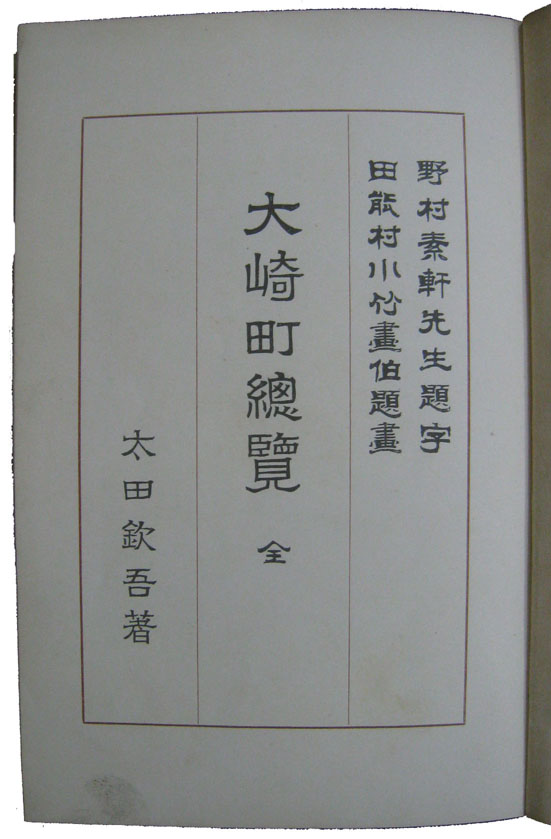 野村素軒先生題字
田能村小竹畫伯題畫
大崎町總覽 全
太田欽吾著